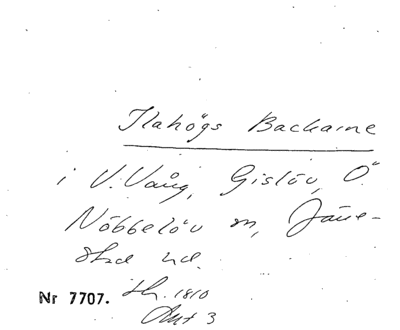 Ilahögs Backarne
i V. Vång, Gislöv, Ö
Nöbbelöv sn, Järre-
stad hd.
Nr 7707. Sk. 1810
Akt 3